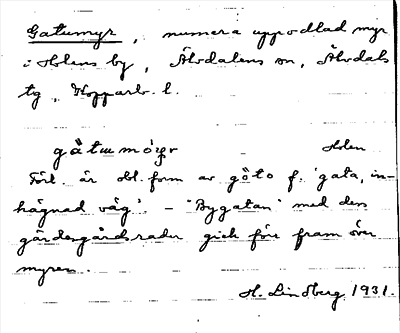 Gatumyr, numera uppodlad myr
i Holens by, Älvdalens sn, Älvdals
tg, Kopparb. l.
gåtumö̀yr Holen
Förl. är obl. form av gå̀to f. 'gata, in-
hägnad väg'. – "Bygatan" med dess
gärdesgårdsrader gick före fram över
myren.
H. Lindberg 1931.